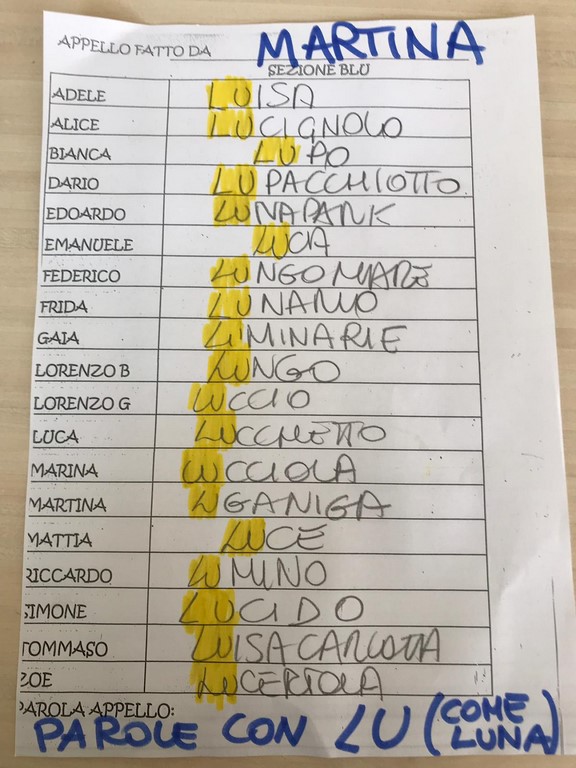 APPELLO FATTO DA MARTINA
SEZIONE BLU
ADELE LUISA
ALICE LUCIGNOLO
BIANCA LUPO
DARIO LUPACCHIOTTO
EDOARDO LUNAPARK
EMANUELE LUCA
FEDERICO LUNGOMARE
FRIDA LUNARIO
GAIA LUMINARIE
LORENZO B LUNGO
LORENZO G LUCCIO
LUCA LUCCHETTO
MARINA LUCCIOLA
MARTINA LUGANIGA
MATTIA LUCE
RICCARDO LUMINO
SIMONE LUCIDO
TOMMASO LUISA CARLOTTA
ZOE LUCERTOLA
PAROLA APPELLO:
PAROLE CON LU (COME LUNA)